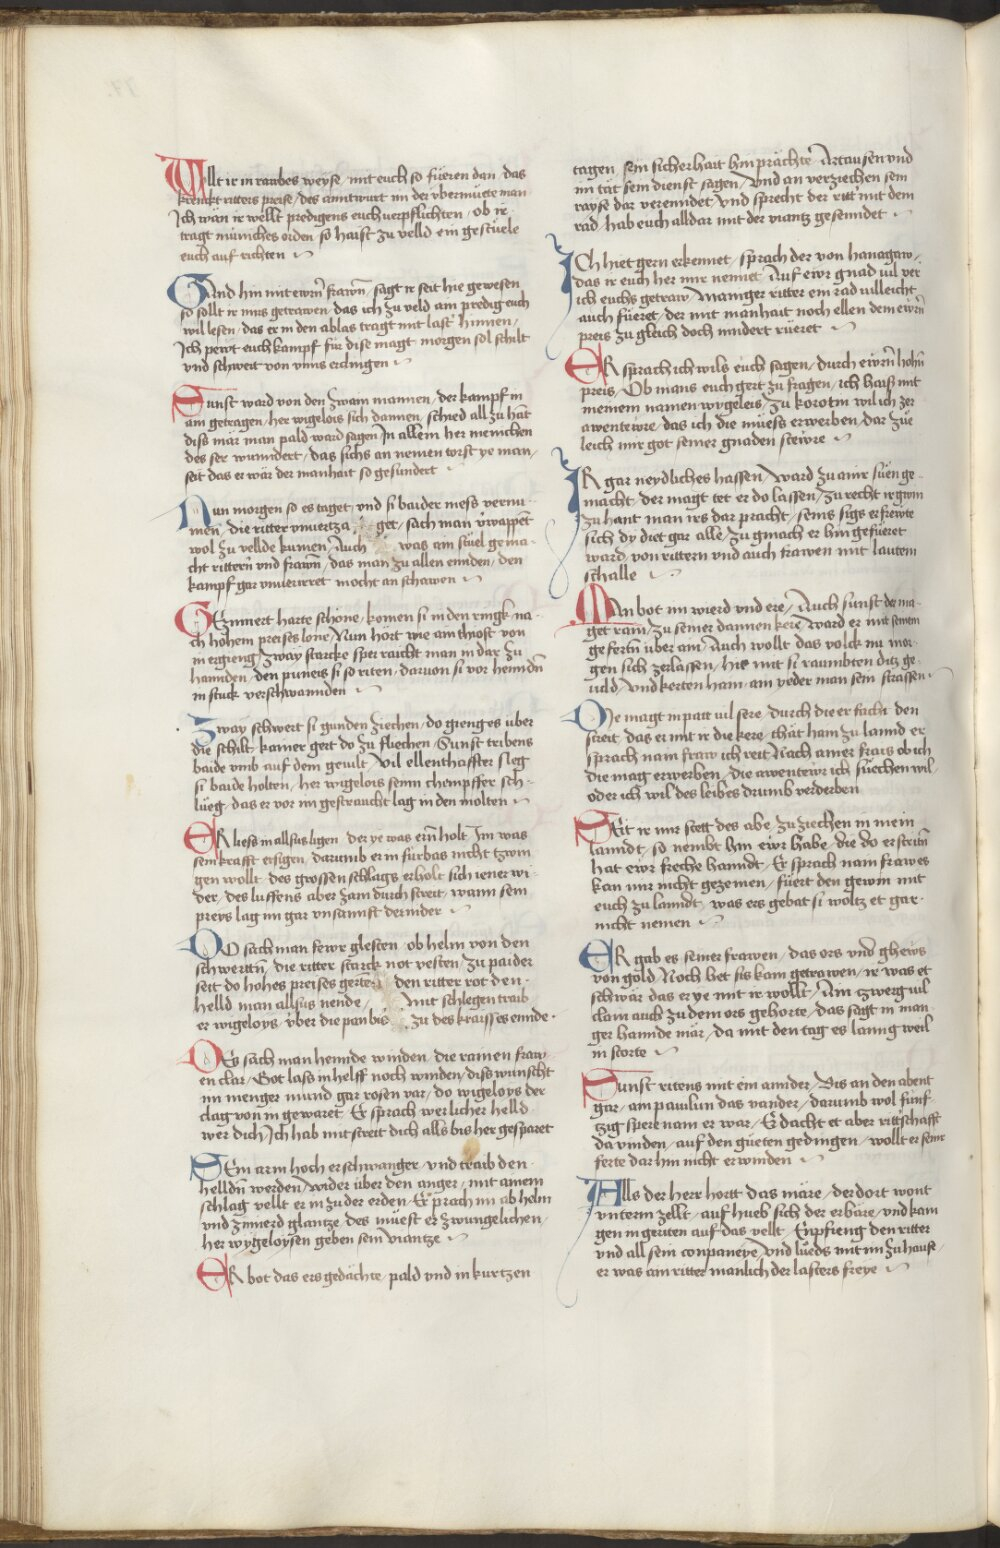 Wllt ir in raubes weyse / mit euch so füeren dan / das
krenckt ritters preise / des anntwurt im der vbermüete man
Ich wän ir wellt predigens euch verpflichten / ob ir
tragt müniches orden so haist zu velld ein gestüele
euch auf richten
Sind hin mit ewrn frawn / sagt ir seit hie gewesen
so sollt ir mirs getrawen / das ich zu veld am predig euch
wil lesen / das er in den ablas tragt mit last hinnen /
Ich pewt euch kampf für dise magt morgen sol schilt
vnd schwert von vnns erclingen
Sunst ward von den zwain mannen / der kampf in
ain getragen / her wigelois sich dannen / schied all zu hant
diss mär man pald ward sagen In allem her menichen
des ser wunndert / das sichs an nemen torst ye man /
seit das er wär der manhait so gesundert
Nun morgen so es taget vnd si baider mess vernu
men / die ritter vnuertza get / sach man vwappent
wol zu vellde kumen / Auch was ain stuel gema
cht rittern vnd frawn / das man zu allen ennden / den
kampf gar vnuerirret mocht an schawen
Gezimiert harte schöne / komen si in den ringk na
ch hohem preises lone / Nun hört wie am thiost von
in ergieng / zway starcke sper raicht man in dar zu
hannden / den puneis si so riten / daruon si vor henndn
in stuck verschwannden
Zway schwert si gunden ziechen / do gieng es über
die schilt / kainer gert do zu fliechen / Sunst tribens
baide vmb auf dem geuilt Vil ellenthaffter sleg
si baide holten / her wigelois seinn chempffer sch
lueg / das er vor im gestraucht lag in den molten
Er liess in allsus ligen der ye was ern holt Im was
sein krafft ersigen / darumb er in fürbas nicht tzwin
gen wollt / des grossen schlags erholt sich iener wi
der / des luffens aber zam durch streit / wann sein
preys lag im gar vnsannft dernider
Do sach man fewr glesten ob helm von den
schwerttn / die ritter starck not vesten / zu paider
seit do hohes preises gerten den ritter rot den
helld man allsus nende / Mit schlegen traib
er wigeloys / vber die pan bis zu des kraisses ennde
Des sach man hennde winden / die rainen fraw
en clar / Got lass in helff noch winden / diss wunscht
im menger mund gar rosen var / do wigeloys der
clag von in gewaret Er sprach werlicher helld
wer dich / Ich hab mit streit dich alls bis her gesparet
Sein arm hoch er schwanger / vnd traib den
helldn werden / wider über den anger / mit ainem
schlag vellt er in zu der erden / Er prach im ab helm
vnd zimierd glantze / des muest er zwungelichen /
her wygeloysen geben sein viantze
Er bot das ers gedächte / pald vnd in kurtzen
tagen / sein sicherhait hin prächte Artausen vnd
im tät sein dienst sagen / Vnd an verziechen sein
rayse dar verenndet / vnd sprecht der ritt mit dem
rad / hab euch alldar mit der viantz gesenndet
Ich hiet gern erkennet / sprach der von hanagaw /
das ir euch her mir nennet Auf ewr gnad vil ver
ich euchs getraw / Maniger ritter ein rad villeicht
auch füeret / der mit manhait noch ellen dem ewrn
preis zu gleich doch mindert rüeret
Er sprach ich wils euch sagen / durch ewrn hohn
preis / Ob mans euch gert zu fragen / ich haiß mit
meinem namen wygeleis / zu korotin wil ich zer
awentewre / das ich die müess erwerben / dar zue
leich mir got seiner gnaden stewre
Ir gar neydliches hassen / ward zu ainr suen ge
macht / der magt tet er do lassen / zu recht ir gwin
zu hant man irs dar pracht / seins sigs erfrewte
sich dy diet gar alle / zu gmach er hin gefüeret
ward / von rittern vnd auch frawen mit lautem
schalle
Man bot im wierd vnd ere / Auch sunst der ma
get rain / zu seiner dannen kere ward er mit seinem
gefertn über ain / Auch wollt das volck nu mor
gen sich zerlassen / hie mit si raumbten ditz ge
uild / vnd kerten haim am yeder man sein strassen
Die magt in patt vil sere / durch die er facht den
streit / das er mit ir die kere / thät haim zu lannd er
sprach nain fraw ich reit Nach ainer frais ob ich
die mag erwerben / die awentewr ich suechen wil /
oder ich wil des leibes drumb verderben
Seit ir mir stett des abe / zu ziechen in mein
lanndt / so nembt hin ewr habe / die do erstritn
hat ewr freche hanndt / Er sprach nain fraw es
kan mir nicht gezemen / füert den gewin mit
euch zu lanndt / was ers gebat si woltz et gar
nicht nemen
Er gab es seiner frawen / das ors vnd gheiws
von gold / Noch bet sis kam getrawen / ir was et
schwär das er ye mit ir wollt / Am tzwerg vil
clain auch zu dem ors gehorte / das sagt in man
ger hannde mär / da mit den tag es lanng weil
in storte
Sunst ritens mit ein annder / Bis an den abent
gar / am pauilun das vander / darumb wol funf
tzig spere nam er war / Er dacht et aber rittschafft
da vinden / auf den güeten gedingen / wollt er seinr
ferte dar hin nicht erwinden
Alls der herr hortt das märe / der dort wont
vnterm zellt / auf hueb sich der erbäre / vnd kam
gen in geriten auf das vellt / Enpfieng den ritter
vnd all sein conpaneye / vnd lueds mit im zu hause /
er was ain ritter manlich der lasters freye